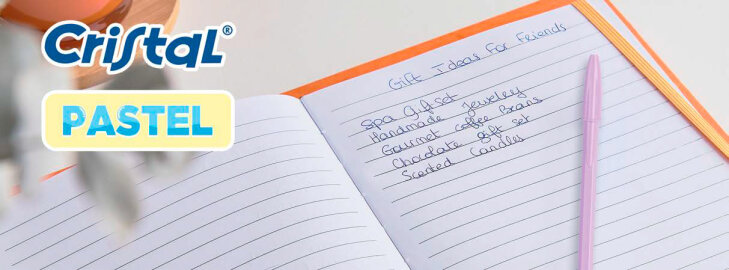 Cristal®
PASTEL
Gift Ideas For Friends
Spa Gift set
Handmade Jewelry
Gourmet Coffee Beans
Chocolate gift set
Scented Candles